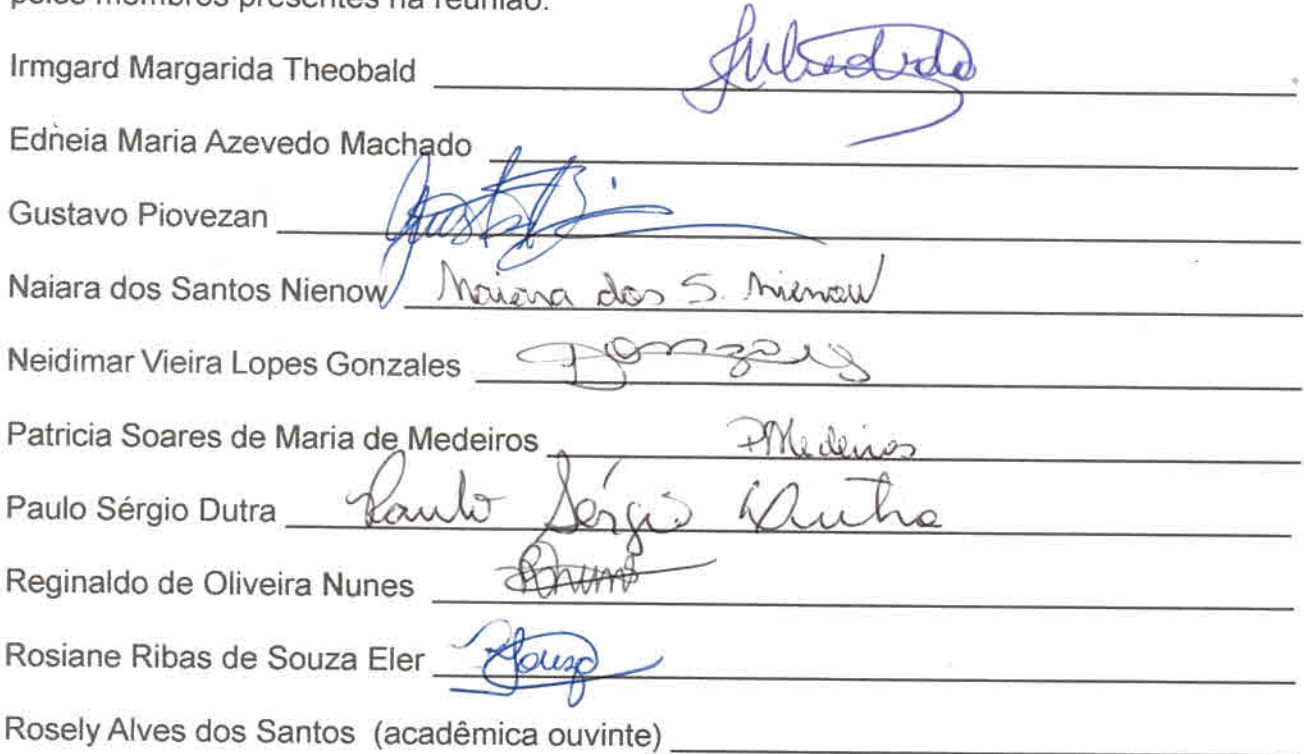 pelos membros presentes na reunião.
Irmgard Margarida Theobald
Edneia Maria Azevedo Machado
Gustavo Piovezan
Naiara dos Santos Nienow Naiara dos S. Nienow
Neidimar Vieira Lopes Gonzales Gonzales
Patricia Soares de Maria de Medeiros PMedeiros
Paulo Sérgio Dutra Paulo Sérgio Dutra
Reginaldo de Oliveira Nunes
Rosiane Ribas de Souza Eler
Rosely Alves dos Santos (acadêmica ouvinte)